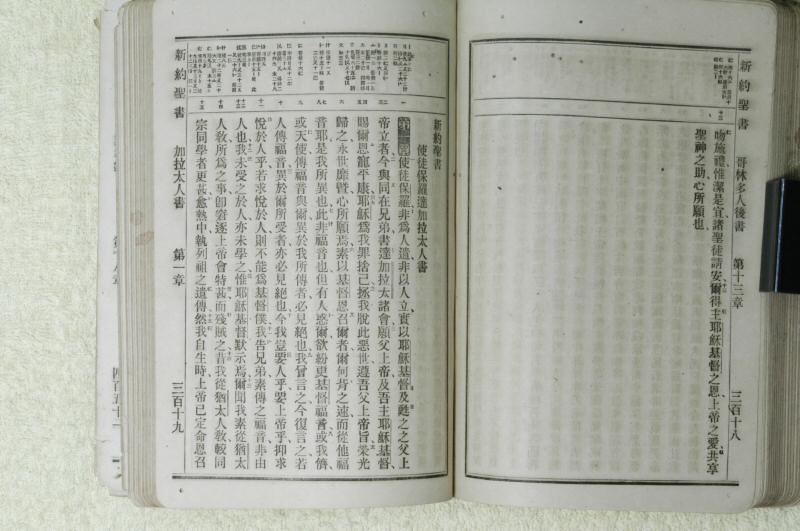 新約聖書 哥林多人後書 第十三章 三百十八
吻施禮惟潔是宜諸聖徒請安爾得主耶穌基督之恩上帝之愛共享
聖神之助心所願也
新約聖書
使徒保羅達加拉太人書
第一章使徒保羅非為人遣非以人立實以耶穌基督及甦之之父上
帝立者今與同在兄弟書達加拉太諸會願父上帝及吾主耶穌基督
賜爾恩寵平康耶穌為我罪捨己拯我脫此惡世遵吾父上帝旨榮光
歸之永世靡曁心所願焉素以基督恩召爾者爾何背之速而從他福
音耶是我所異也此非福音也但有人惑爾欲紛更基督福音或我儕
或天使傳福音與爾異於我所傳者必見絕也我曾言之今復言之若
人傳福音異於爾所受者亦必見絕也今我豈要人乎要上帝乎抑求
悅於人乎若求悅於人則不能為基督僕我告兄弟素傳之福音非由
人也我未受之於人亦未學之惟耶穌基督默示焉爾聞我素從猶太
人教所為之事即窘逐上帝會特甚而殘賊之昔我從猶太人教較同
宗同學者更甚愈熱中執列祖之遺傳然我自生時上帝已定命恩召
新約聖書 加拉太人書 第一章 三百十九